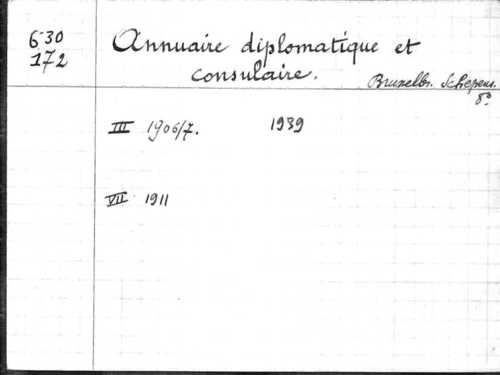 630
172
Annuaire diplomatique et
consulaire.
Bruxelles. Schepens.
8º
III 1906/7. 1939
VII 1911